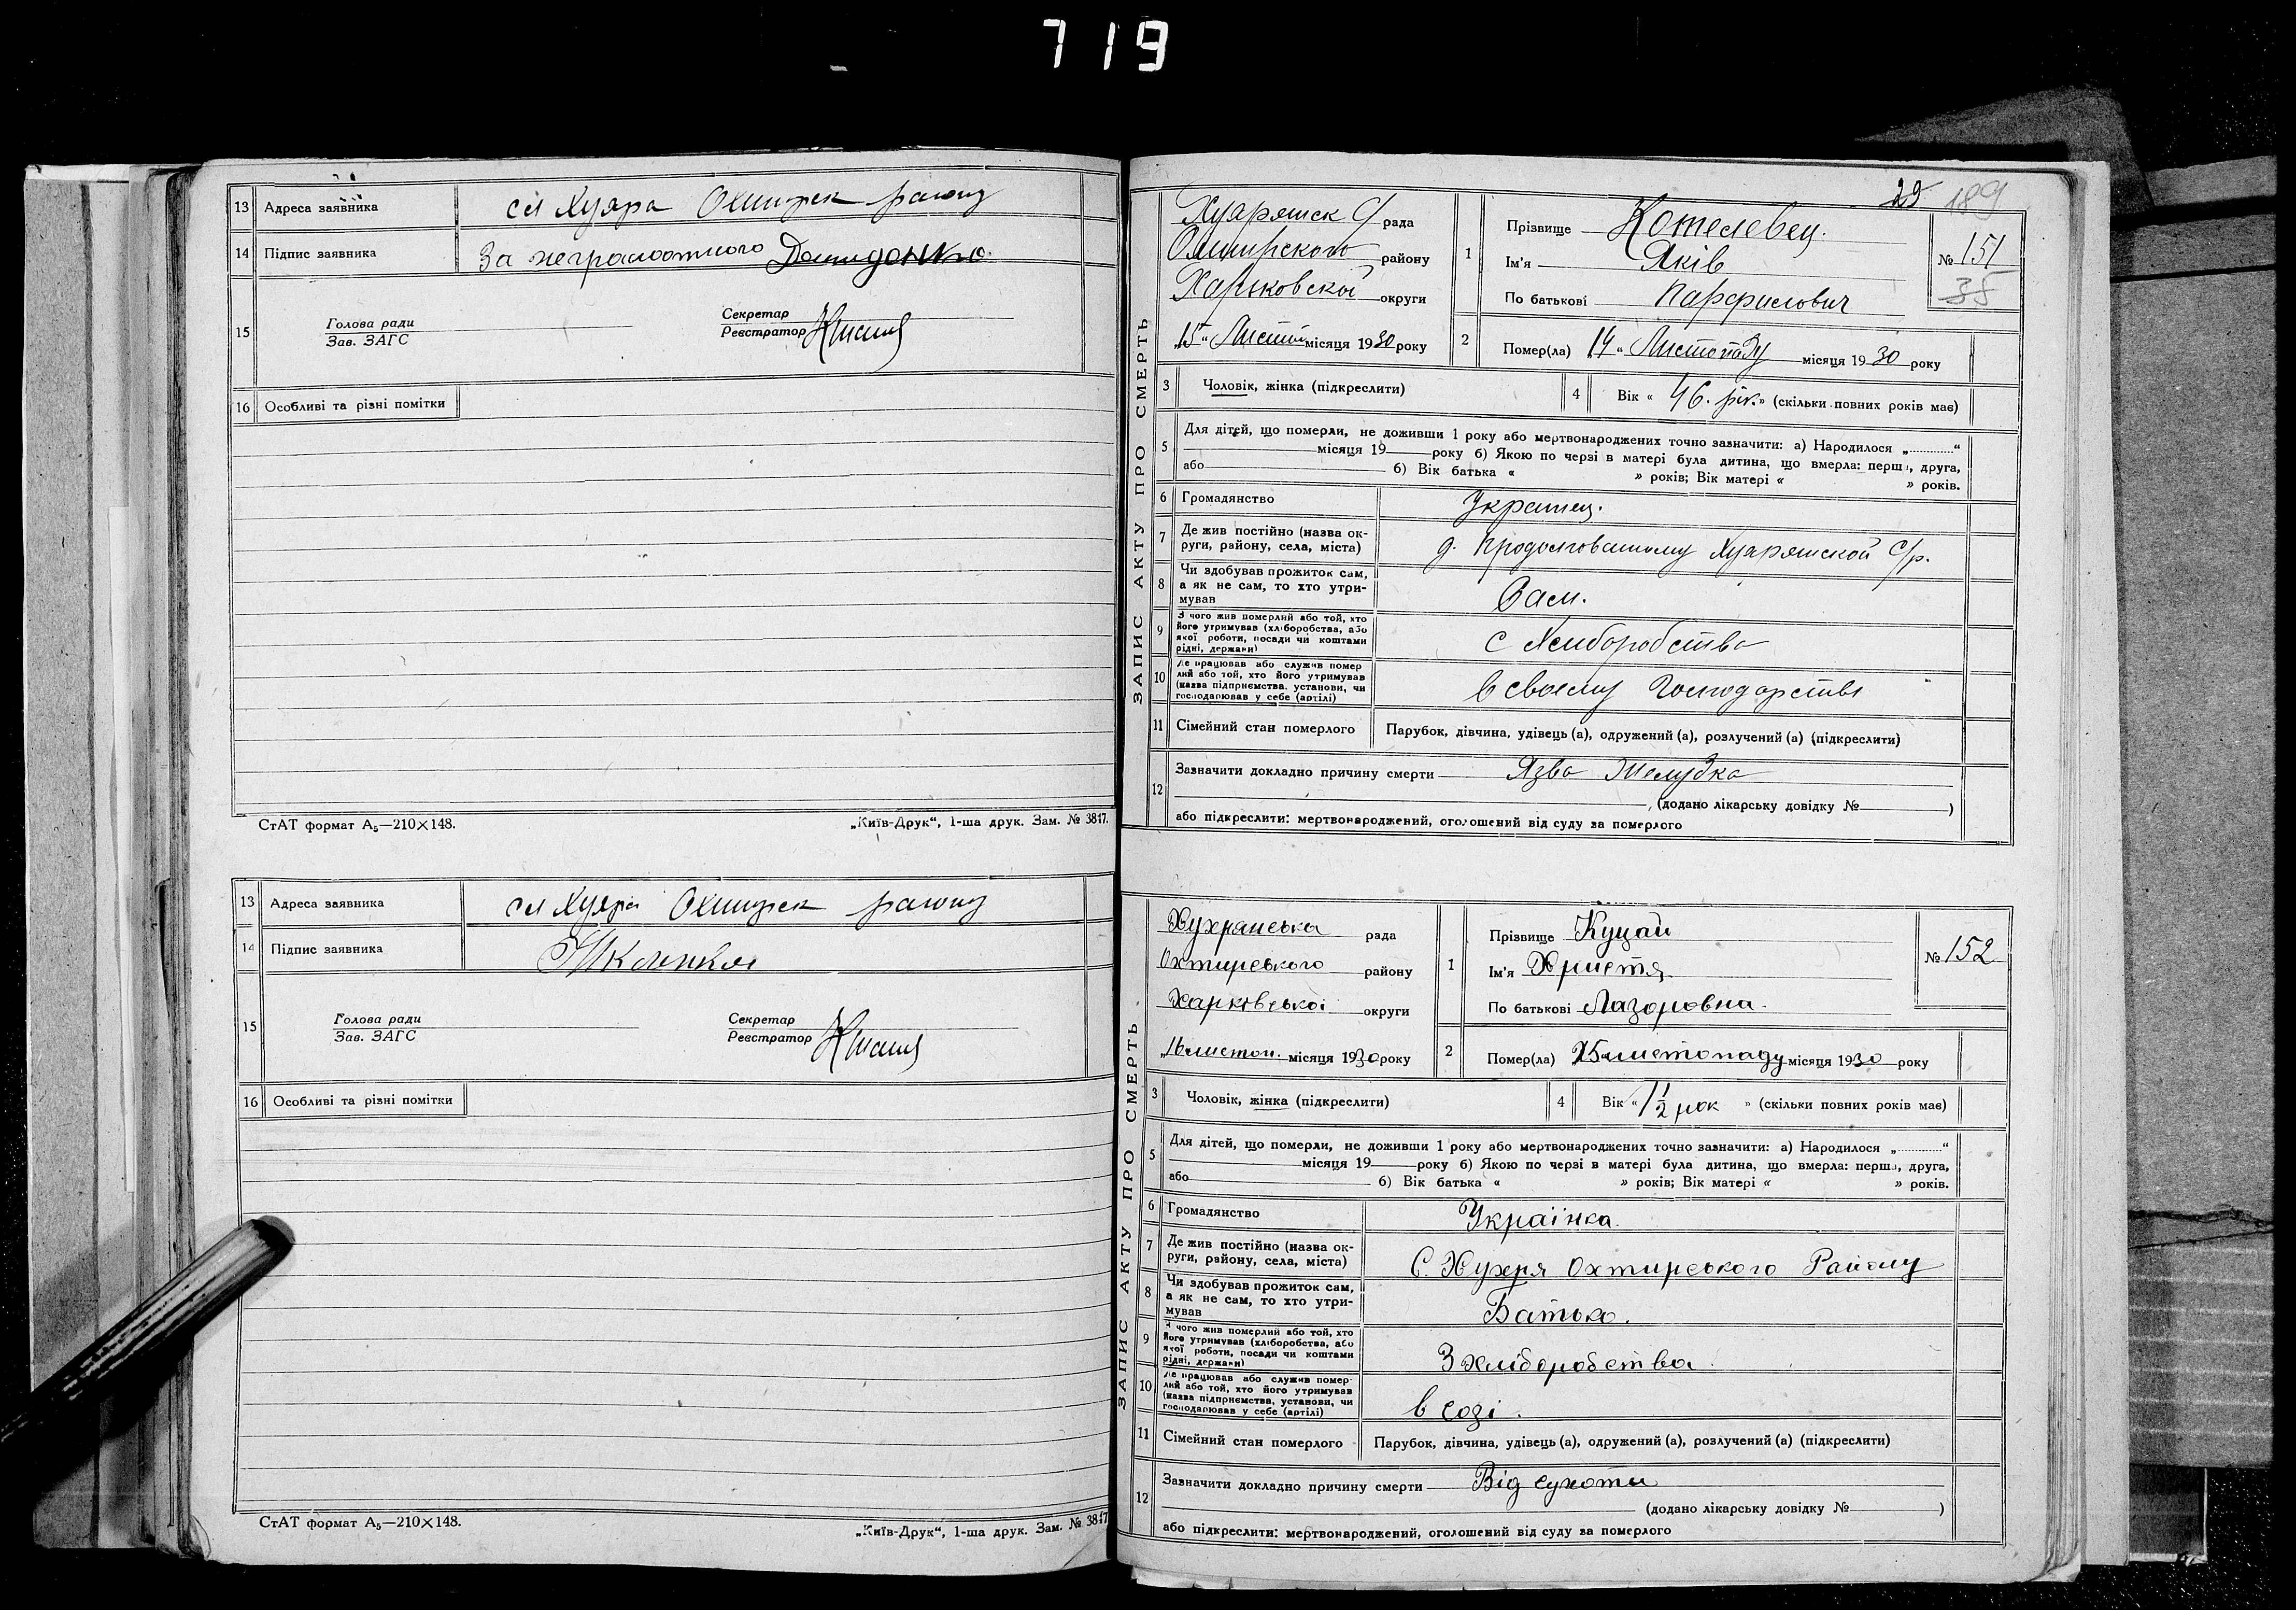 719
13 Адреса заявника сл Хухра Охтирск району
14 Підпис заявника За неграмотного
15 Голова ради
Зав. ЗАГС
Секретар
Реєстратор
16 Особливі та різні помітки
СтАТ формат А₅—210×148. „Київ-Друк“, 1-ша друк. Зам. № 3817.
13 Адреса заявника сл Хухра Охтирск району
14 Підпис заявника
15 Голова ради
Зав. ЗАГС
Секретар
Реєстратор
16 Особливі та різні помітки
СтАТ формат А₅—210×148. „Київ-Друк“, 1-ша друк. Зам. № 3817
29 189
ЗАПИС АКТУ ПРО СМЕРТЬ
Хухрянск С/ рада
Охтирского району
Харьковской округи
„15“ Листоп місяця 1930 року
1 Прізвище Котелевец.
Ім'я Яків
По батькові Парфилович
№ 151
35
2 Помер(ла) 14 „ Листопаду місяця 1930 року
3 Чоловік, жінка (підкреслити)
4 Вік « 46. рік.» (скільки повних років має)
5 Для дітей, що померли, не доживши 1 року або мертвонароджених точно зазначити: а) Народилося „............“
місяця 19 року б) Якою по черзі в матері була дитина, що вмерла: перша, друга,
або б) Вік батька « » років; Вік матері « » років.
6 Громадянство Украинец.
7 Де жив постійно (назва округи, району, села, міста) Хухрянской С/р.
8 Чи здобував прожиток сам,
а як не сам, то хто утри-
мував Сам.
9 З чого жив померлий або той, хто
його утримував (хліборобства, або
якої роботи, посади чи коштами
рідні, держави) с Хлиборобства
10 Де працював або служив помер
лий або той, хто його утримував
(назва підприємства, установи, чи
господарював у себе (артілі) в своему Господарстві
11 Сімейний стан померлого Парубок, дівчина, удівець (а), одружений (а), розлучений (а) (підкреслити)
12 Зазначити докладно причину смерти Язва Желудка
, (додано лікарську довідку № )
або підкреслити: мертвонароджений, оголошений від суду за померлого
ЗАПИС АКТУ ПРО СМЕРТЬ
Хухрянська рада
Охтирського району
Харківської округи
„16 листоп. місяця 1930 року
1 Прізвище Куцай
Ім'я Христя
По батькові Лазоровна.
№ 152
2 Помер(ла) 15 листопаду місяця 1930 року
3 Чоловік, жінка (підкреслити)
4 Вік « 1 1/2 рок » (скільки повних років має)
5 Для дітей, що померли, не доживши 1 року або мертвонароджених точно зазначити: а) Народилося „............“
місяця 19 року б) Якою по черзі в матері була дитина, що вмерла: перша, друга,
або б) Вік батька « » років; Вік матері « » років.
6 Громадянство Українка.
7 Де жив постійно (назва ок-
руги, району, села, міста) С. Хухря Охтирського Району
8 Чи здобував прожиток сам,
а як не сам, то хто утри-
мував Батько.
9 З чого жив померлий або той, хто
його утримував (хліборобства, або
якої роботи, посади чи коштами
рідні, держави) З хліборобства.
10 Де працював або служив помер-
лий або той, хто його утримував
(назва підприємства, установи, чи
господарював у себе (артілі) в созі.
11 Сімейний стан померлого Парубок, дівчина, удівець (а), одружений (а), розлучений (а) (підкреслити)
12 Зазначити докладно причину смерти Від сухоти
(додано лікарську довідку № )
або підкреслити: мертвонароджений, оголошений від суду за померлого